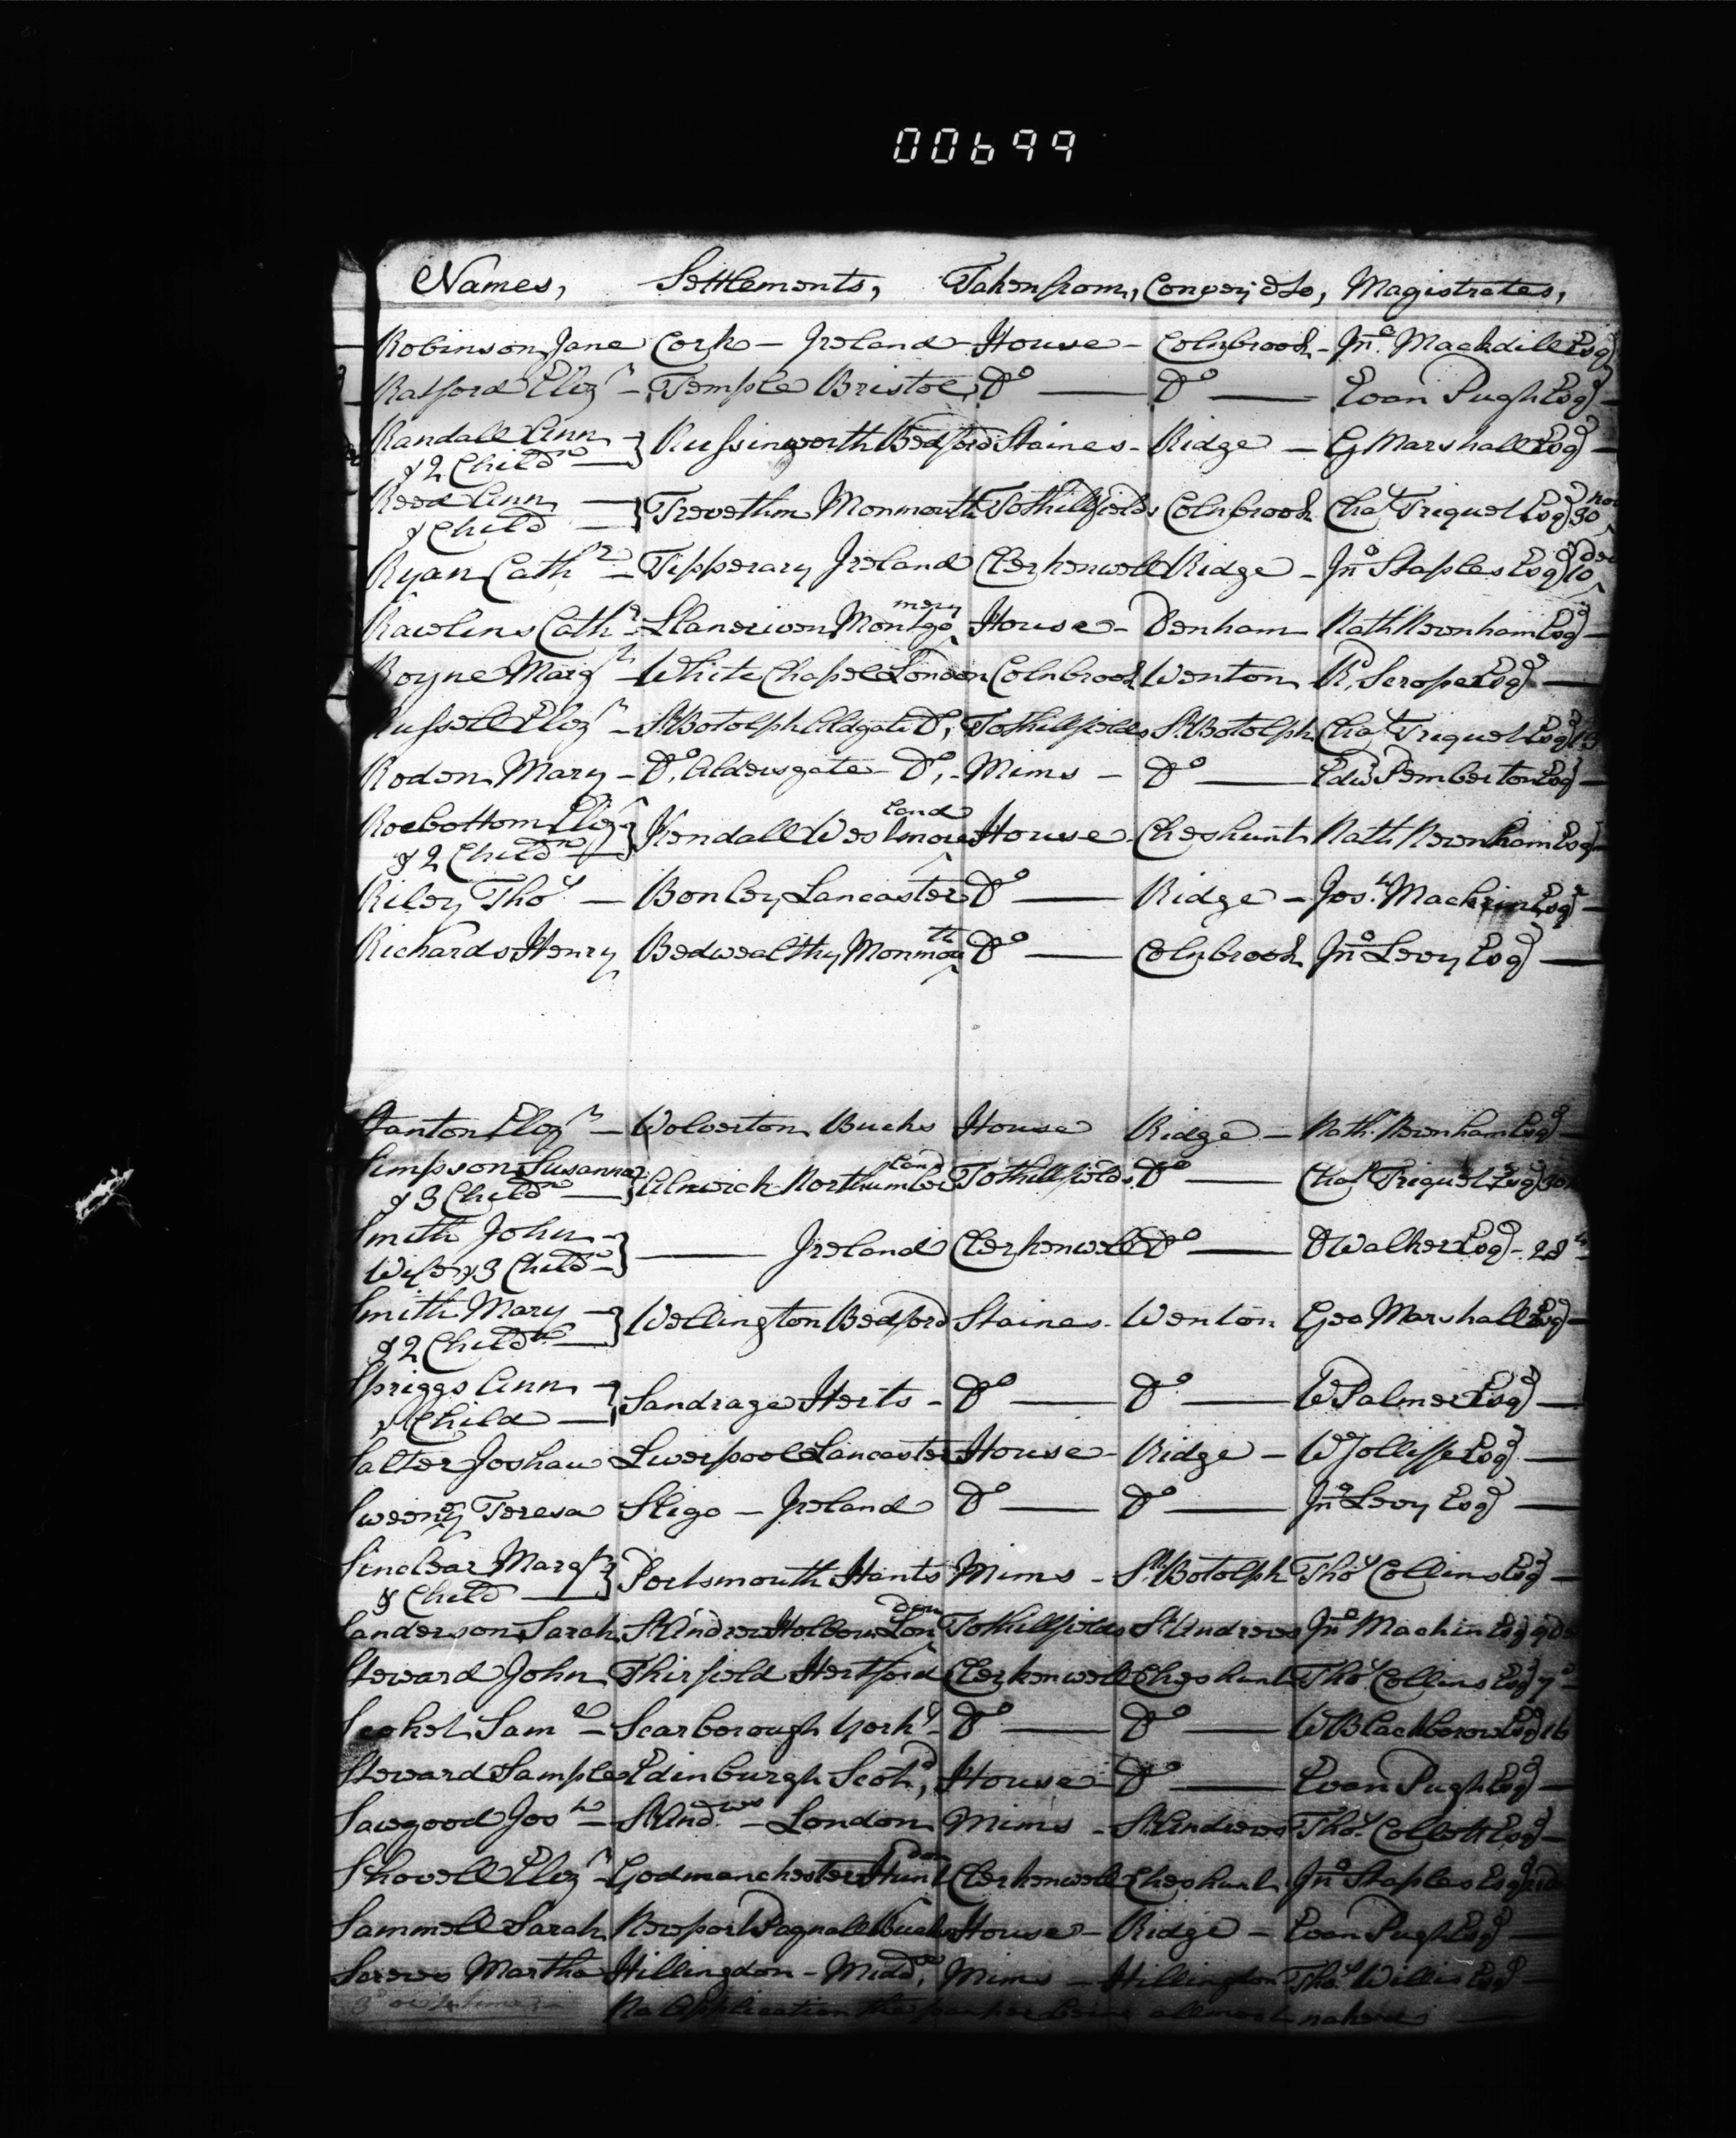 00699
Names, Settlements, Taken from, Convey'd to, Magistrates,
Robinson Jane Cork - Ireland - House - Colnbrook - Jno. Mackdill Esqr
Ratford Elizh - Temple Bristol Do — Do — Evan Pugh Esqr -
Randall Ann - Russingworth Bedford Staines - Ridge - G Marshall Esqr -
& 2 Childn —
Reed Ann — Trevethin Monmouth Tothillfields Colnbrook Chas Triquet Esqr 30 Nov
& Child —
Ryan Cathne - Tipperary Ireland Clerkenwell Ridge - Jno Staples Esqr 10 Dec
Rawlins Cathe - Llaneriven Montgomery House - Denham - Nath Newnham Esqr -
Royne Margt - White Chapel London Colnbrook Wenton R. Scrope Esqr —
Russell Elizh - St Botolph Aldgate Do, Tothillfields St Botolph Chas Triquet Esqr 13
Roden Mary - Do. Aldersgate - Do, - Mims - Do — Edwd Pemberton Esqr -
Roebottom Elizh Kendall Westmoreland House - Cheshunt Nath Newnham Esqr -
& 2 Childn —
Riley Thos - Bonley Lancaster Do — Ridge - Josh Mackrin Esqr -
Richards Henry Bedwealthy Monmouth Do — Colnbrook Jno Levy Esqr —
Stanton Elizh - Wolverton Bucks House Ridge - Nathl Newnham Esqr -
Simpson Susanna Alnwick Northumberland Tothillfields Do — Chas Triquet Esqr 30
& 3 Childn —
Smith John - — Ireland Clerkenwell Do — D Walker Esqr - 28th
Wife & 3 Childn -
Smith Mary - Wellington Bedford Staines - Wenton Geo Marshall Esqr -
& 2 Childn —
Spriggs Ann - Sandrage Herts - Do — Do — W Palmer Esqr —
& Child —
Salter Joshau Liverpool Lancaster House - Ridge - W Jolliffe Esqr —
Sweeny Teresa Sligo - Ireland Do — Do — Jno Levy Esqr —
Sinclear Margt Portsmouth Hants Mims - St Botolph Thos Collins Esqr -
& Child —
Sanderson Sarah St Andrew Holborn London Tothillfields St Andrews Jno Machin Esqr 9 De
Steward John Thirfield Hertford Clerkenwell Cheshunt Thos Collins Esqr 7
Seokel Saml - Scarborough Yorks - Do — Do — W Blackborow Esqr 16
Steward Sample Edinburgh Scotd, House - Do — Evan Pugh Esqr -
Sawgood Josh - St Andws - London Mims - St Andrews Thos Collett Esqr -
Shovell Elizh - Godmanchester Huntdon Clerkenwell Cheshunt Jno Staples Esqr
Sammell Sarah Newport Pagnall Bucks House - Ridge - Evan Pugh Esqr -
Serews Martha Hillingdon - Middx, Mims - Hillington Thos Willis Esqr -
No Application the pauper being allmost naked —